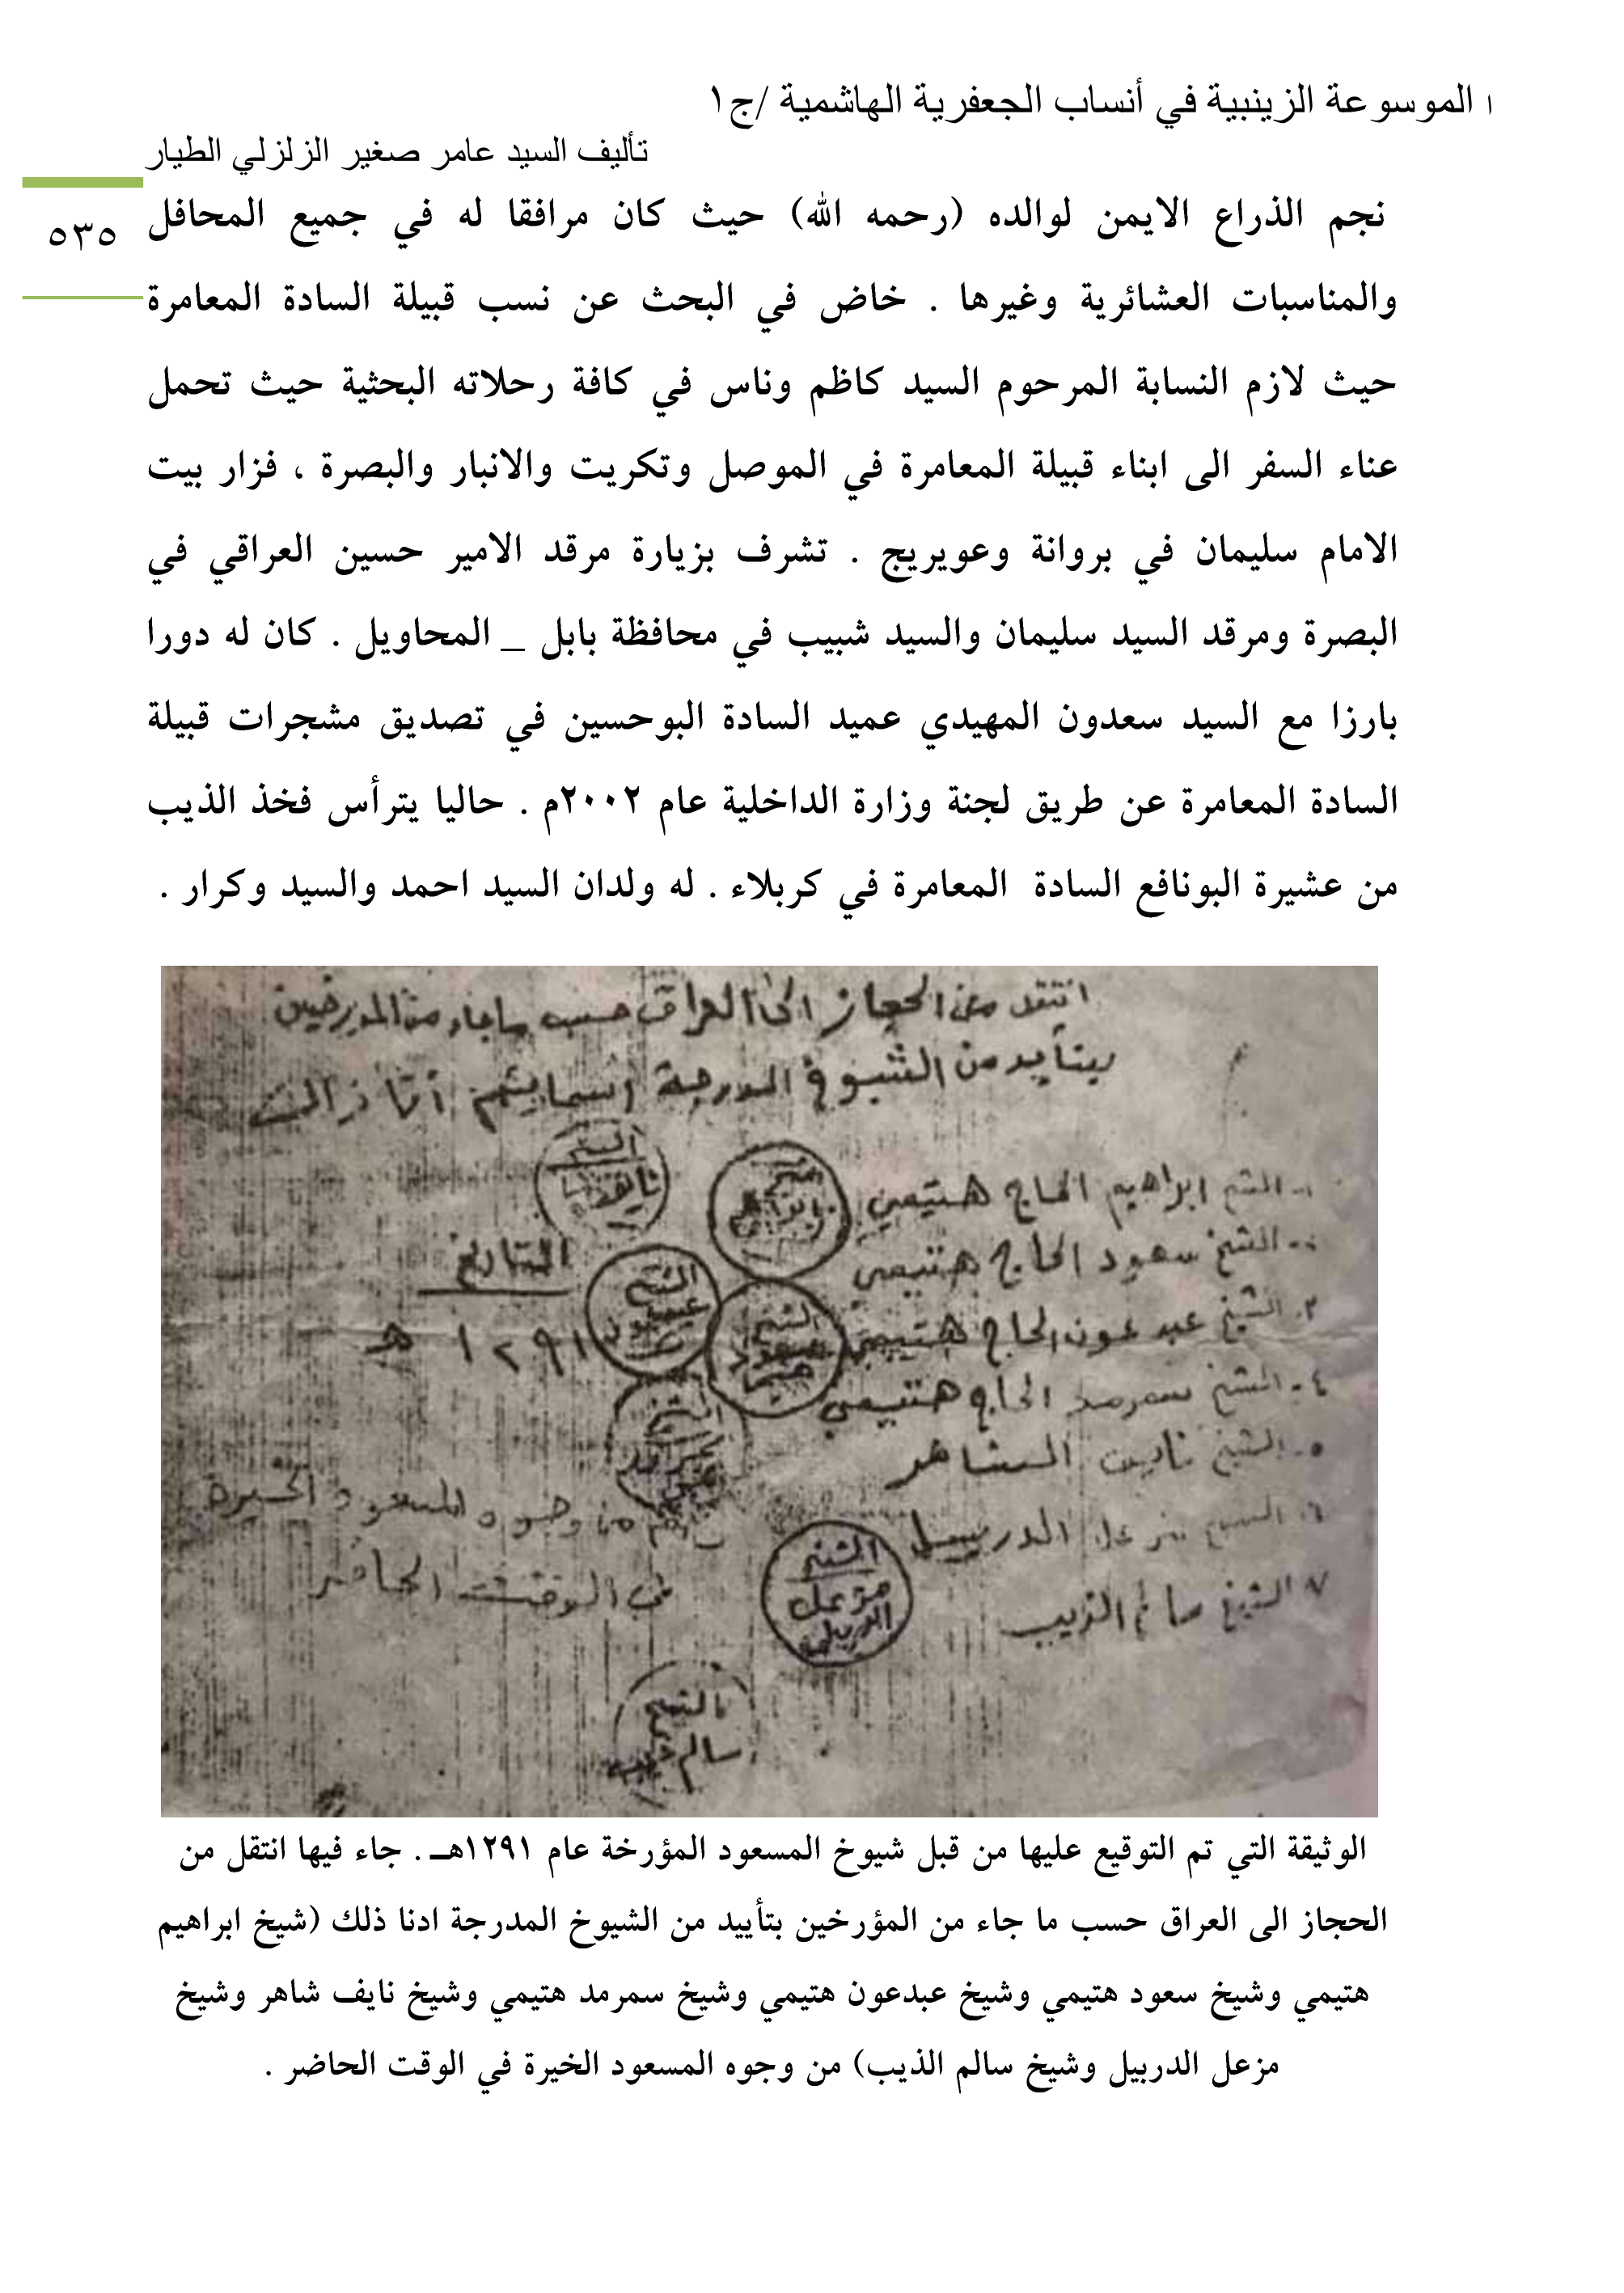 ا الموسوعة الزينبية في أنساب الجعفرية الهاشمية /ج١
تأليف السيد عامر صغير الزلزلي الطيار
٥٣٥
نجم الذراع الايمن لوالده (رحمه الله) حيث كان مرافقا له في جميع المحافل
والمناسبات العشائرية وغيرها . خاض في البحث عن نسب قبيلة السادة المعامرة
حيث لازم النسابة المرحوم السيد كاظم وناس في كافة رحلاته البحثية حيث تحمل
عناء السفر الى ابناء قبيلة المعامرة في الموصل وتكريت والانبار والبصرة ، فزار بيت
الامام سليمان في بروانة وعويريج . تشرف بزيارة مرقد الامير حسين العراقي في
البصرة ومرقد السيد سليمان والسيد شبيب في محافظة بابل _ المحاويل . كان له دورا
بارزا مع السيد سعدون المهيدي عميد السادة البوحسين في تصديق مشجرات قبيلة
السادة المعامرة عن طريق لجنة وزارة الداخلية عام ٢٠٠٢م . حاليا يترأس فخذ الذيب
من عشيرة البونافع السادة المعامرة في كربلاء . له ولدان السيد احمد والسيد وكرار .
انتقل من الحجاز الى العراق حسب ما جاء من المورخين
بتأييد من الشيوخ المدرجة
١- الشيخ ابراهيم الحاج هتيمي
الشيخ سعود الحاج هتيمي
الشيخ عبدعون الحاج هتيمي
٤- الشيخ سمرمد الحاج هتيمي
٥- الشيخ نايف الشاهر
الشيخ مزعل الدربيل
٧ الشيخ سالم الذيب
التاريخ
١٢٩١ هـ
من وجوه المسعود الخيرة
في الوقت الحاضر
الشيخ
مزعل
الدربيل
الشيخ
سعود
الشيخ
سالم
الوثيقة التي تم التوقيع عليها من قبل شيوخ المسعود المؤرخة عام ١٢٩١هــ . جاء فيها انتقل من
الحجاز الى العراق حسب ما جاء من المؤرخين بتأييد من الشيوخ المدرجة ادنا ذلك (شيخ ابراهيم
هتيمي وشيخ سعود هتيمي وشيخ عبدعون هتيمي وشيخ سمرمد هتيمي وشيخ نايف شاهر وشيخ
مزعل الدربيل وشيخ سالم الذيب) من وجوه المسعود الخيرة في الوقت الحاضر .